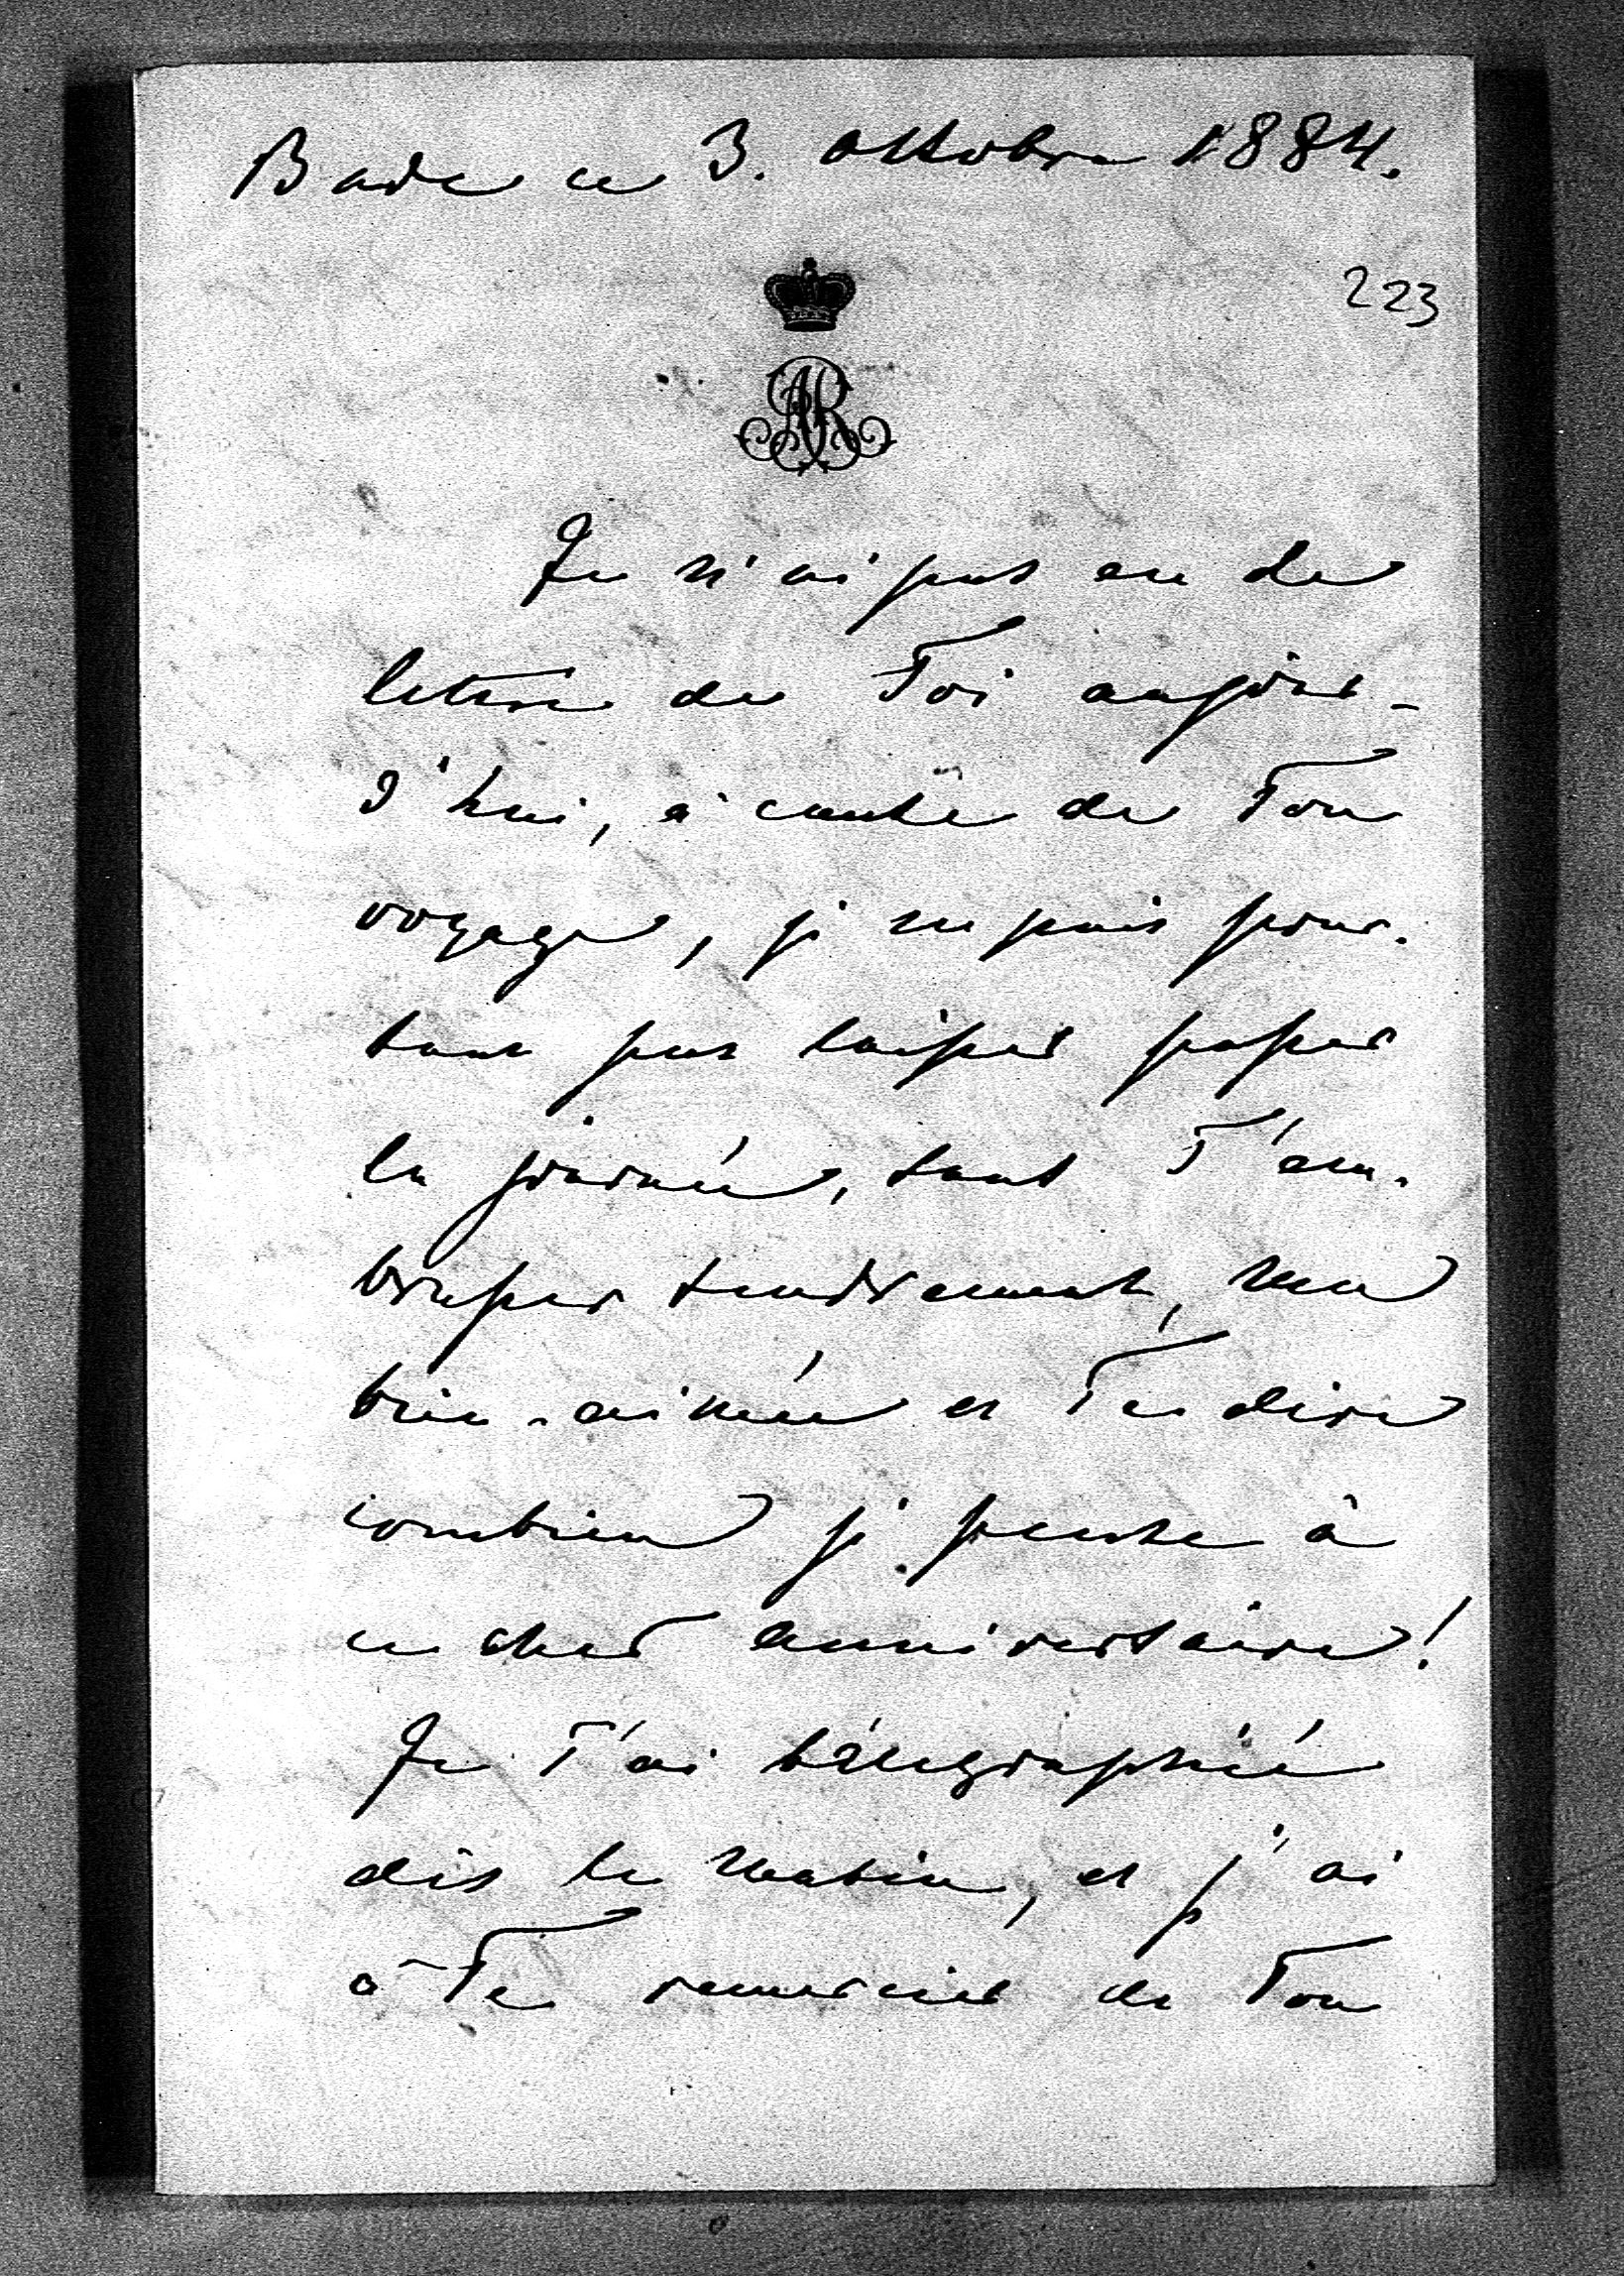 Bade ce 3. octobre 1884.
223
AR
Je n'ai pas eu de
lettre de Toi aujour-
d'hui, à cause de Ton
voyage, je ne puis pour-
tant pas laisser passer
la journée, sans T'em-
brasser tendrement, ma
bien-aimée et Te dire
combien je pense à
ce cher anniversaire!
Je T'ai télégraphié
dès le matin, et j'ai
à Te remercier de Ton